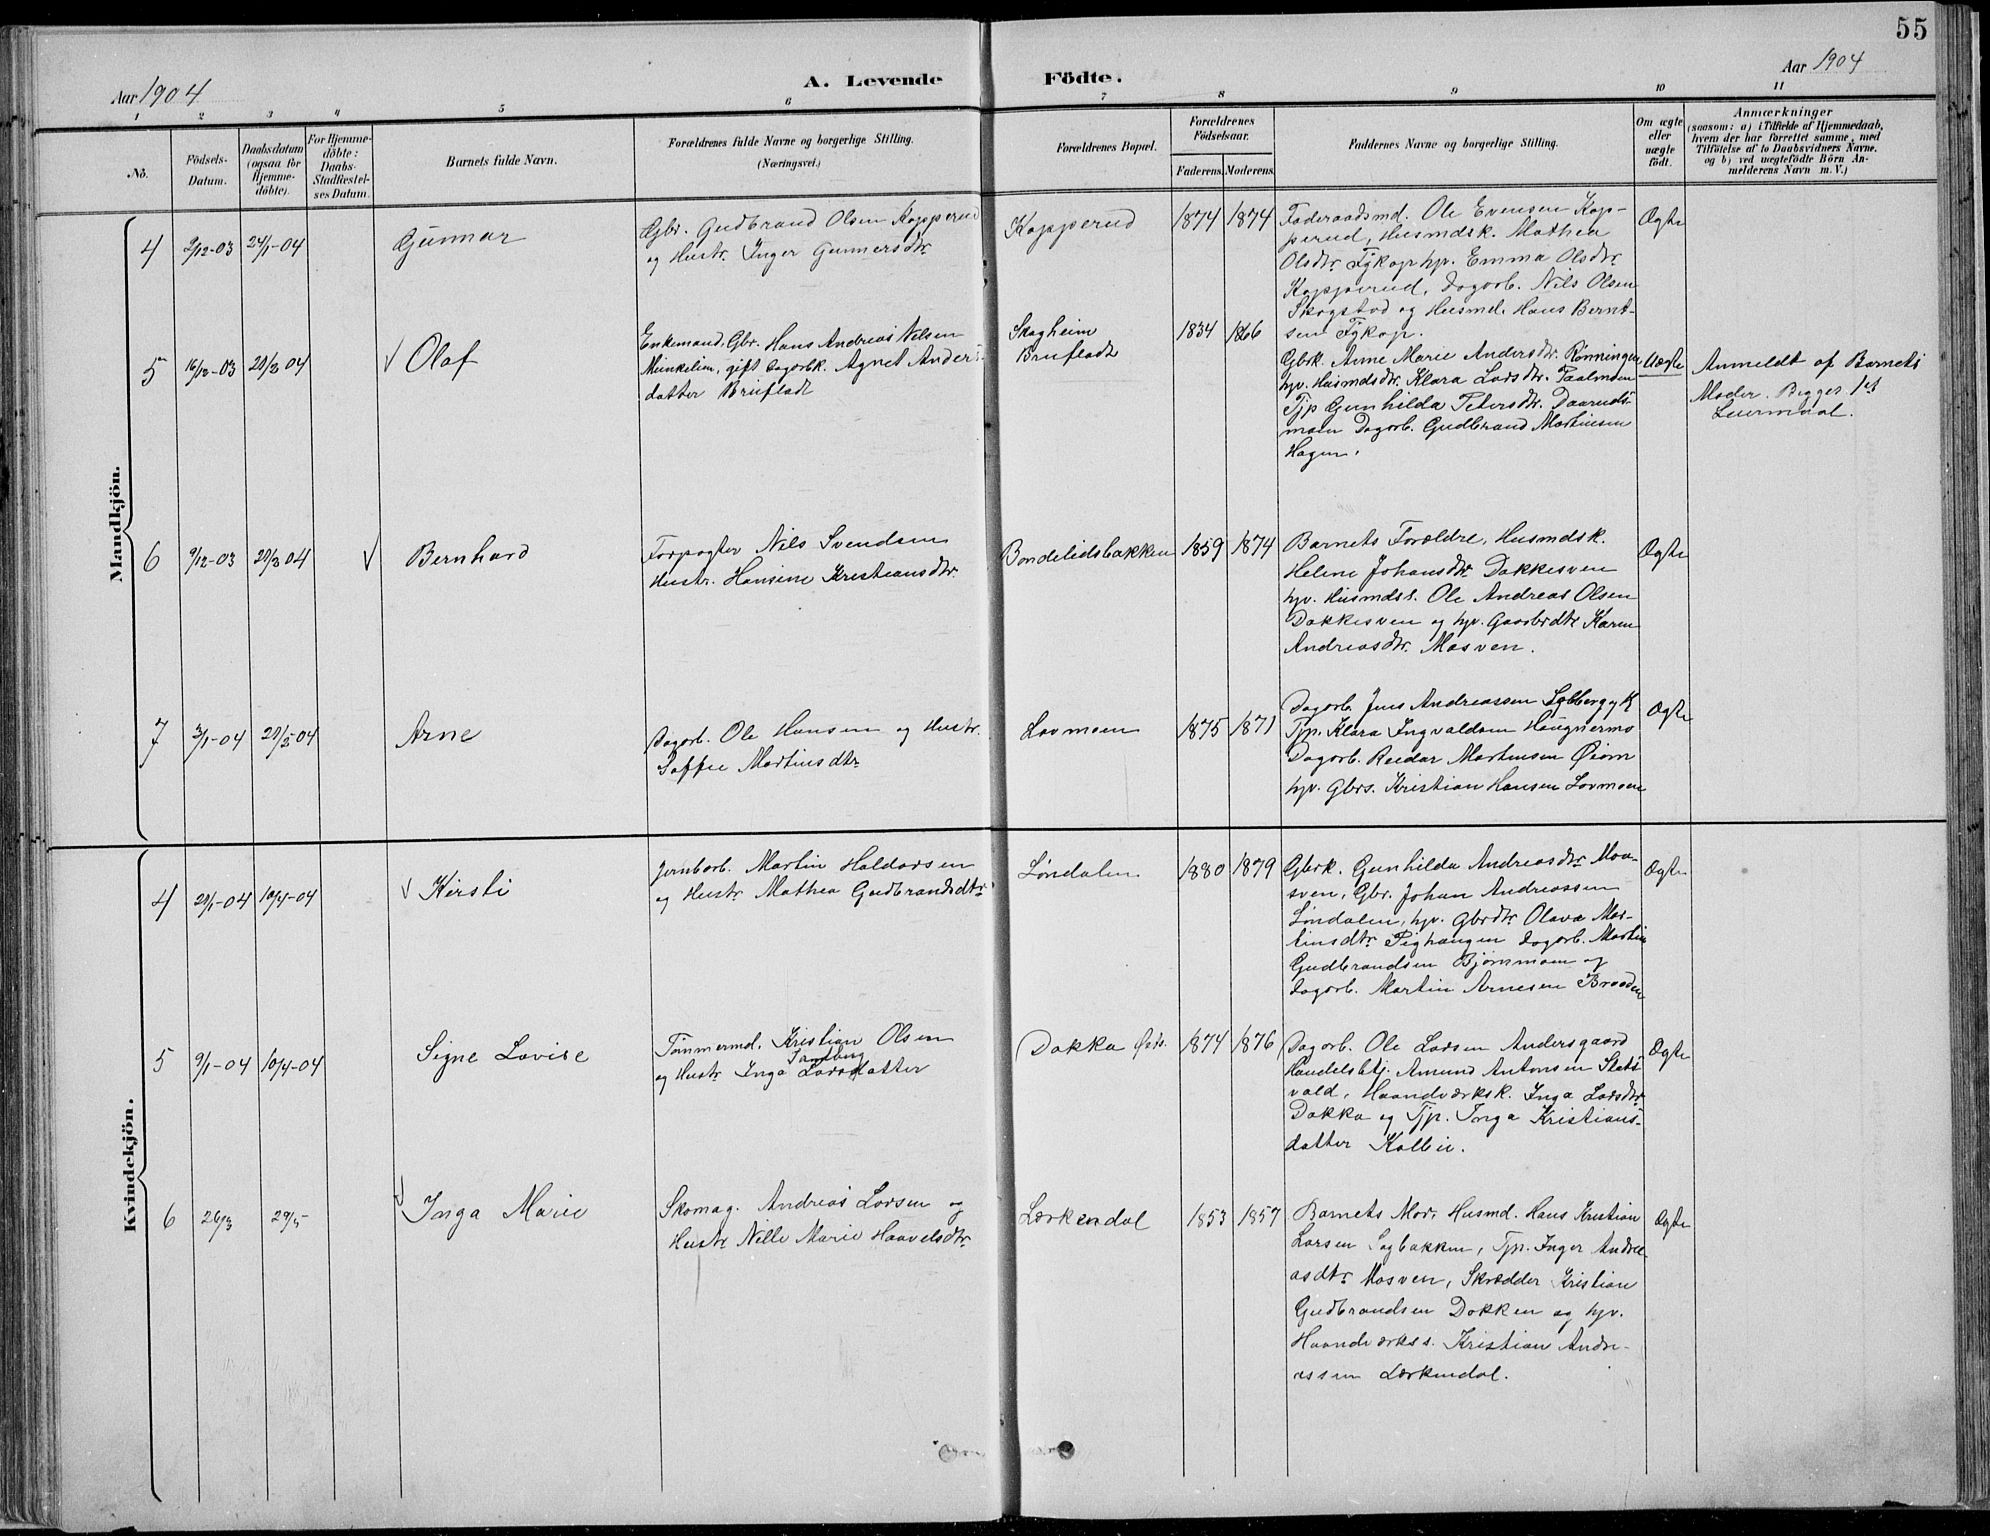 55
Aar 1904
A. Levende Födte.
Aar 1904
1 2 3 4 5 6 7 8 9 10 11
No.
Födsels-
Datum.
Daabsdatum
(ogsaa for
Hjemme-
döbte).
For Hjemme-
döbte:
Daabs-
Stadfæstel-
ses Datum.
Barnets fulde Navn.
Forældrenes fulde Navne og borgerlige Stilling.
(Næringsvei.)
Forældrenes Bopæl.
Forældrenes
Födselsaar.
Faderens. Moderens.
Faddernes Navne og borgerlige Stilling.
Om ægte
eller
uægte
födt.
Anmærkninger
(saasom: a) i Tilfælde af Hjemmedaab,
hvem der har forrettet samme, med
Tilföielse af to Daabsvidners Navne.
og b) ved uægtefödte Börn An-
melderens Navn m. V.)
Mandkjön.
4 2/12-03 24/1-04 Gunnar
Gbr. Gudbrand Olsen Kopperud
og Hustr. Inger Gunnersdtr.
Kopperud 1874 1874
Føderaadsmd. Ole Evensen Kop-
perud, Husmdsk. Mathea
Olsdtr. Fykop hp. Emma Olsdtr.
Kopperud, Dagarb. Nils Olsen
Skogstad og Husmd. Hans Bernt-
sen Fykop.
Ægte
5 16/12-03 20/3 04 Olaf
Enkemand, Gbr. Hans Andreas Nilsen
Munkelien, gift Dagarbk. Agnet Anders-
datter Brufladt
Skogheim
Brufladt
1834 1866
Gbrk. Anne Marie Andersdtr. Rønningen
hp. Husmdsdtr. Klara Larsdtr. Paalmoen
Tjp Gunhilda Petersdtr. Daaruds-
moen Dagarb. Gudbrand Martinsen
Hagen.
Uægte
Anmeldt af Barnets
Moder. Begges 1st
Leiermaal.
6 9/12-03 20/3 04 Bernhard
Forpagter Nils Svendsen
Hustr. Hansine Kristiansdtr.
Bondelidsbakken 1859 1874
Barnets Forældre, Husmdsk.
Helene Johansdtr. Dokkesven
hp. Husmdss. Ole Andreas Olsen
Dokkesven og hp. Gaardrdtr Karen
Andreasdtr. Mosven.
Ægte
7 3/1-04 20/3-04 Arne
Dagarb. Ole Hansen og Hustr.
Soffie Martinsdtr.
Lovmoen 1875 1871
Dagarb. Jens Andreassen
Tjp. Klara Ingvaldsen Haugnermo
Dagarb. Reidar Martinsen Øiom
hp. Gbrs. Kristian Hansen Lovmoen
Ægte
Kvindekjön.
4 20/1-04 10/4-04 Kirsti
Jernbarb. Martin Haldorsen
og Hustr. Mathea Gudbrandsdtr.
Løndalen 1880 1879
Gbrk. Gunhilda Andreasdtr. Moa-
sven, Gbr. Johan Andreassen
Løndalen, hp. Gbrdtr. Olava Mar-
tinsdtr. Pighaugen Dagarb. Martin
Gudbrandsen Bjørnmoen og
Dagarb. Martin Arnesen Braaden
Ægte
5 9/1-04 10/4-04 Signe Lovise
Tømmermd. Kristian Olsen
Sandberg
og Hustr. Inga Larsdatter
Dokka 1874 1876
Dagarb. Ole Larsen Andersgaard
Handelsbtj. Amund Antonsen Slets-
vold, Haandværksk. Inga Larsdtr.
Dokka og Tjp. Inga Kristians-
datter Kolbu.
Ægte
6 26/3 29/5 Inga Marie
Skomag. Andreas Larsen og
Hustr. Nille Marie Haavelsdtr.
Lerkendal 1853 1857
Barnets Mor, Husmd. Hans Kristian
Larsen Sagbakken, Tjp. Inger Andre-
asdtr. Mosven, Skrædder Kristian
Gudbrandsen Dokken og hp.
Haandværkss. Kristian Andre-
assen Lærkendal.
Ægte